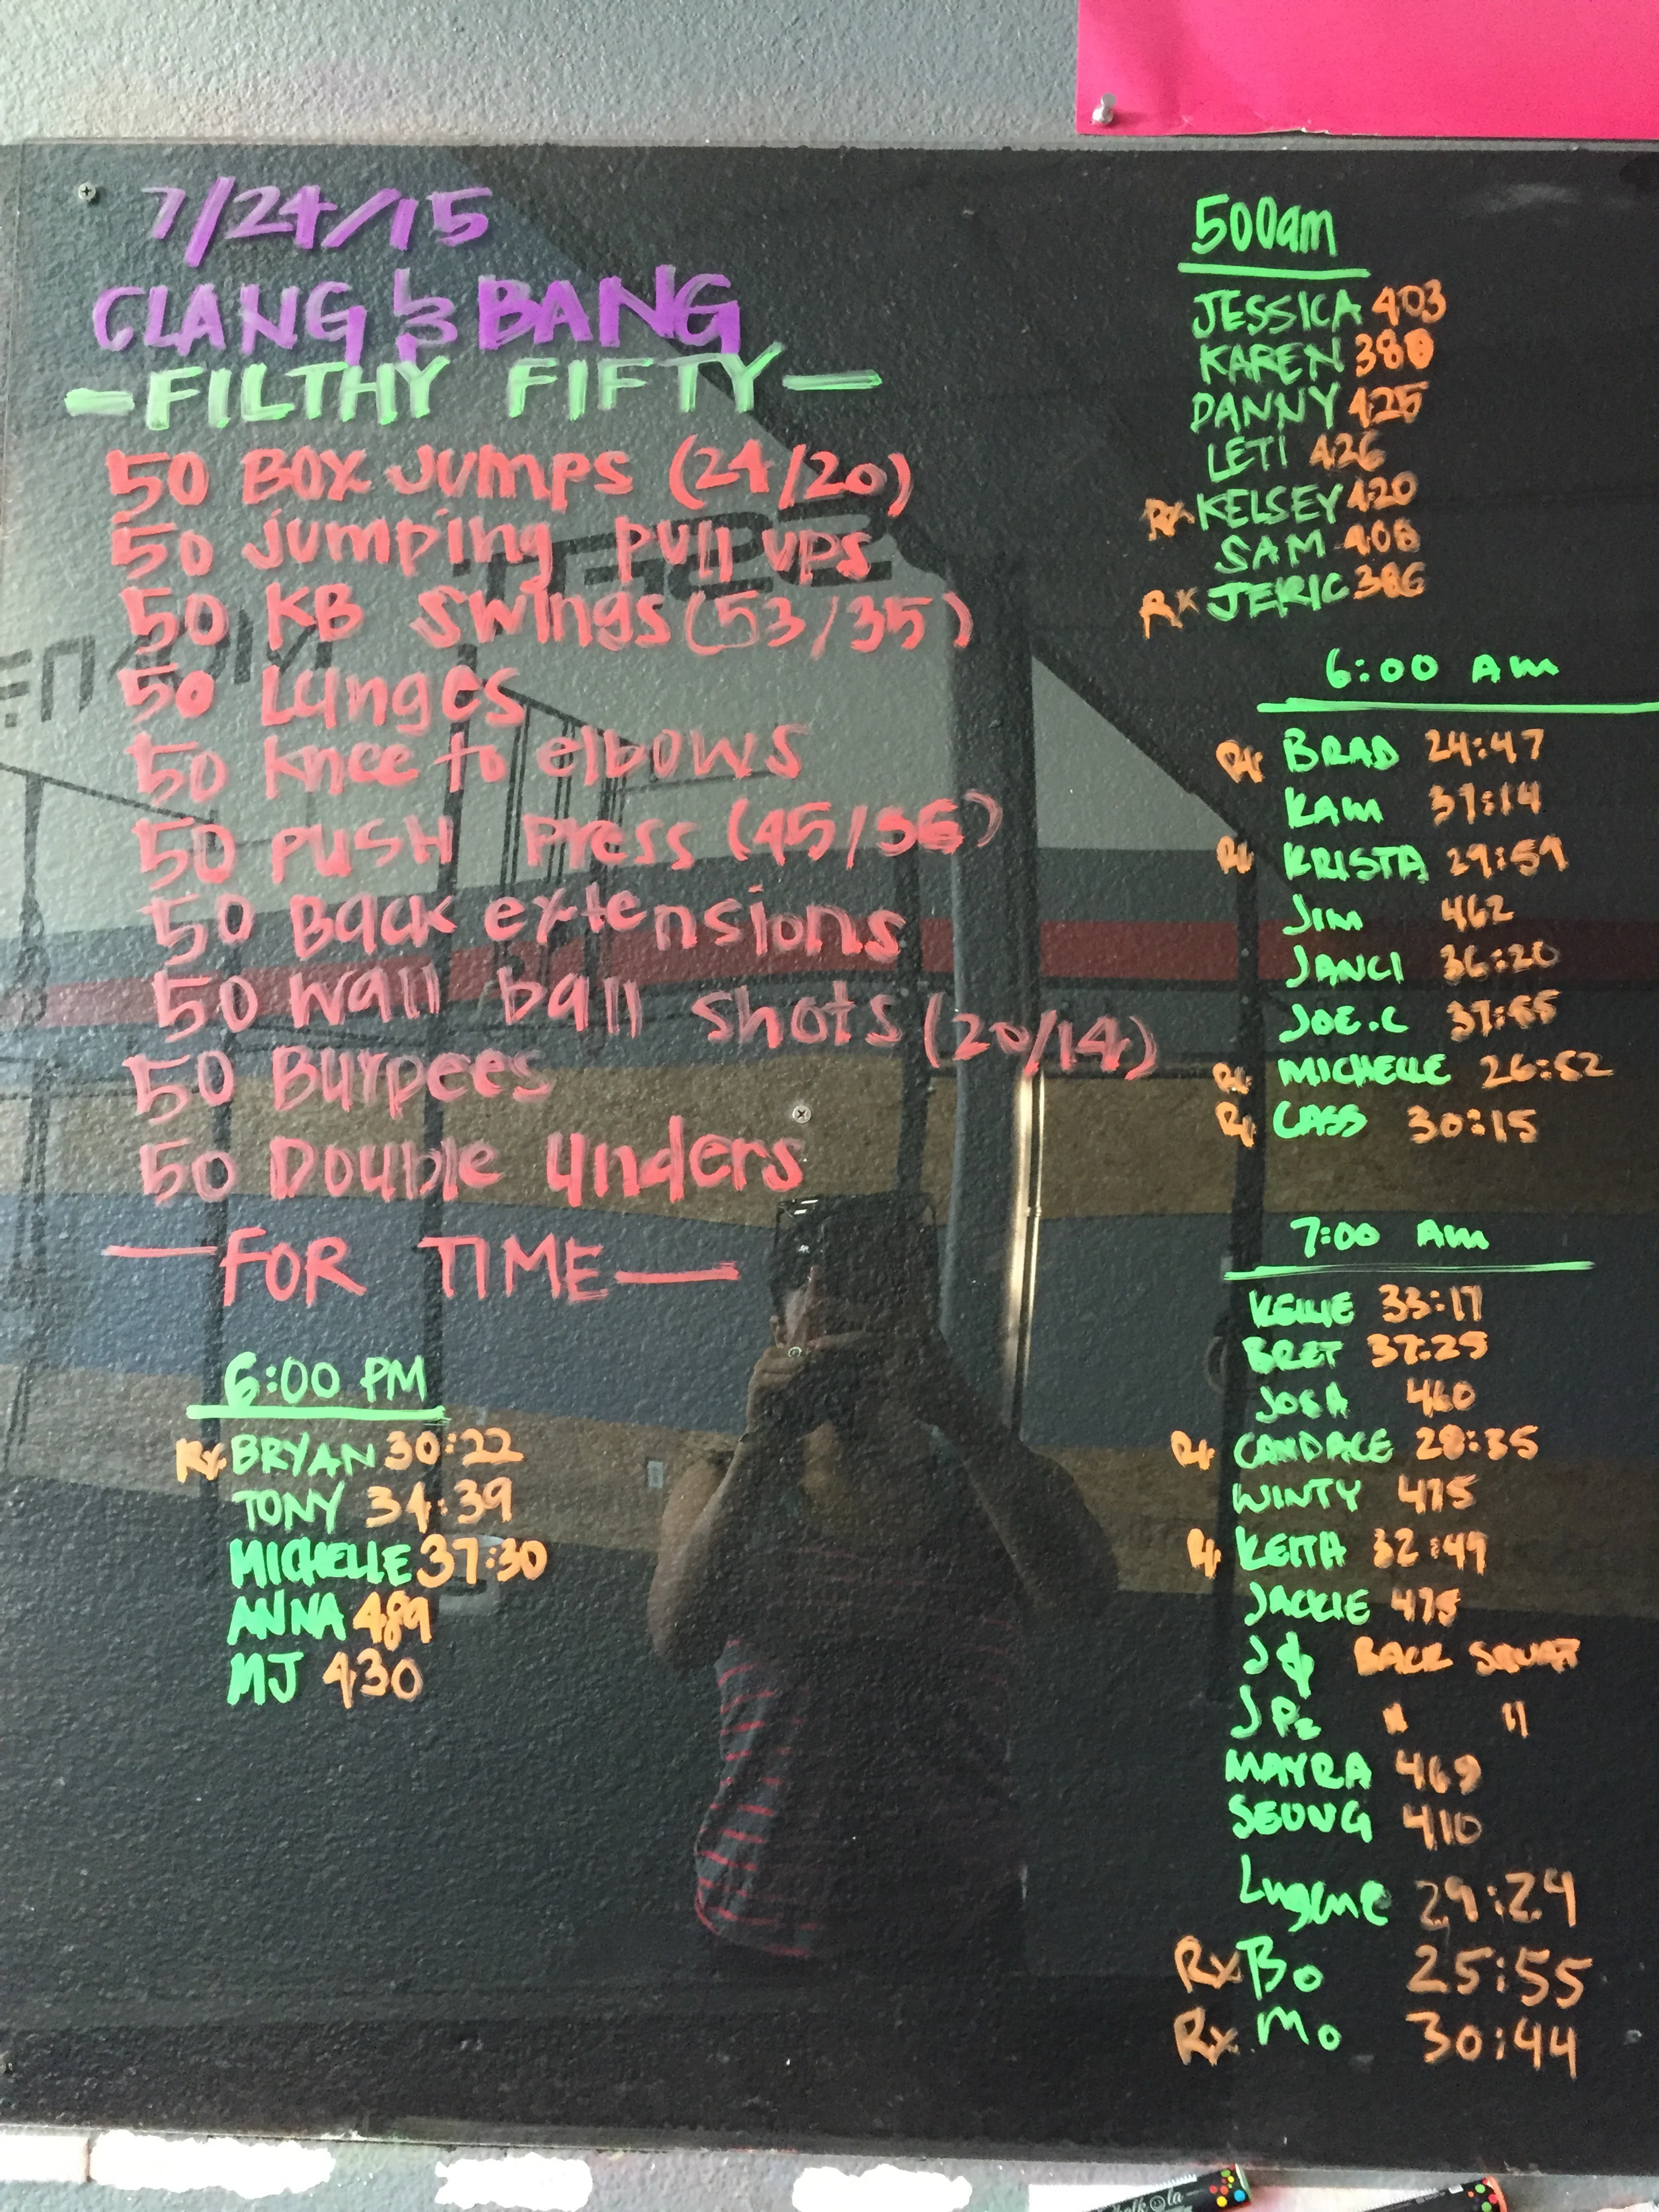 7/24/15
CLANG & BANG
-FILTHY FIFTY-
50 BOX JUMPS (24/20)
50 Jumping pull ups
50 KB Swings (53/35)
50 Lunges
50 Knee to elbows
50 PUSH Press (45/35)
50 Back extensions
50 Wall ball shots (20/14)
50 Burpees
50 Double Unders
—FOR TIME—
6:00 PM
Rx BRYAN 30:22
TONY 34:39
MICHELLE 37:30
ANNA 489
MJ 430
500am
JESSICA 403
KAREN 380
DANNY 425
LETI 426
Rx KELSEY 420
SAM 408
RX JERIC 386
6:00 AM
Rx BRAD 24:47
KAM 37:14
Rx KRISTA 29:59
JIM 462
JANCI 36:20
JOE.C 37:55
Rx MICHELLE 26:52
Rx CASS 30:15
7:00 AM
KELLIE 33:17
BRET 37:25
JOSH 460
Rx CANDACE 28:35
WINTY 475
Rx KEITH 32:49
JACKIE 475
BACK SQUAT
JPz " "
MAYRA 469
SEUNG 410
Lugene 29:24
Rx Bo 25:55
Rx Mo 30:44